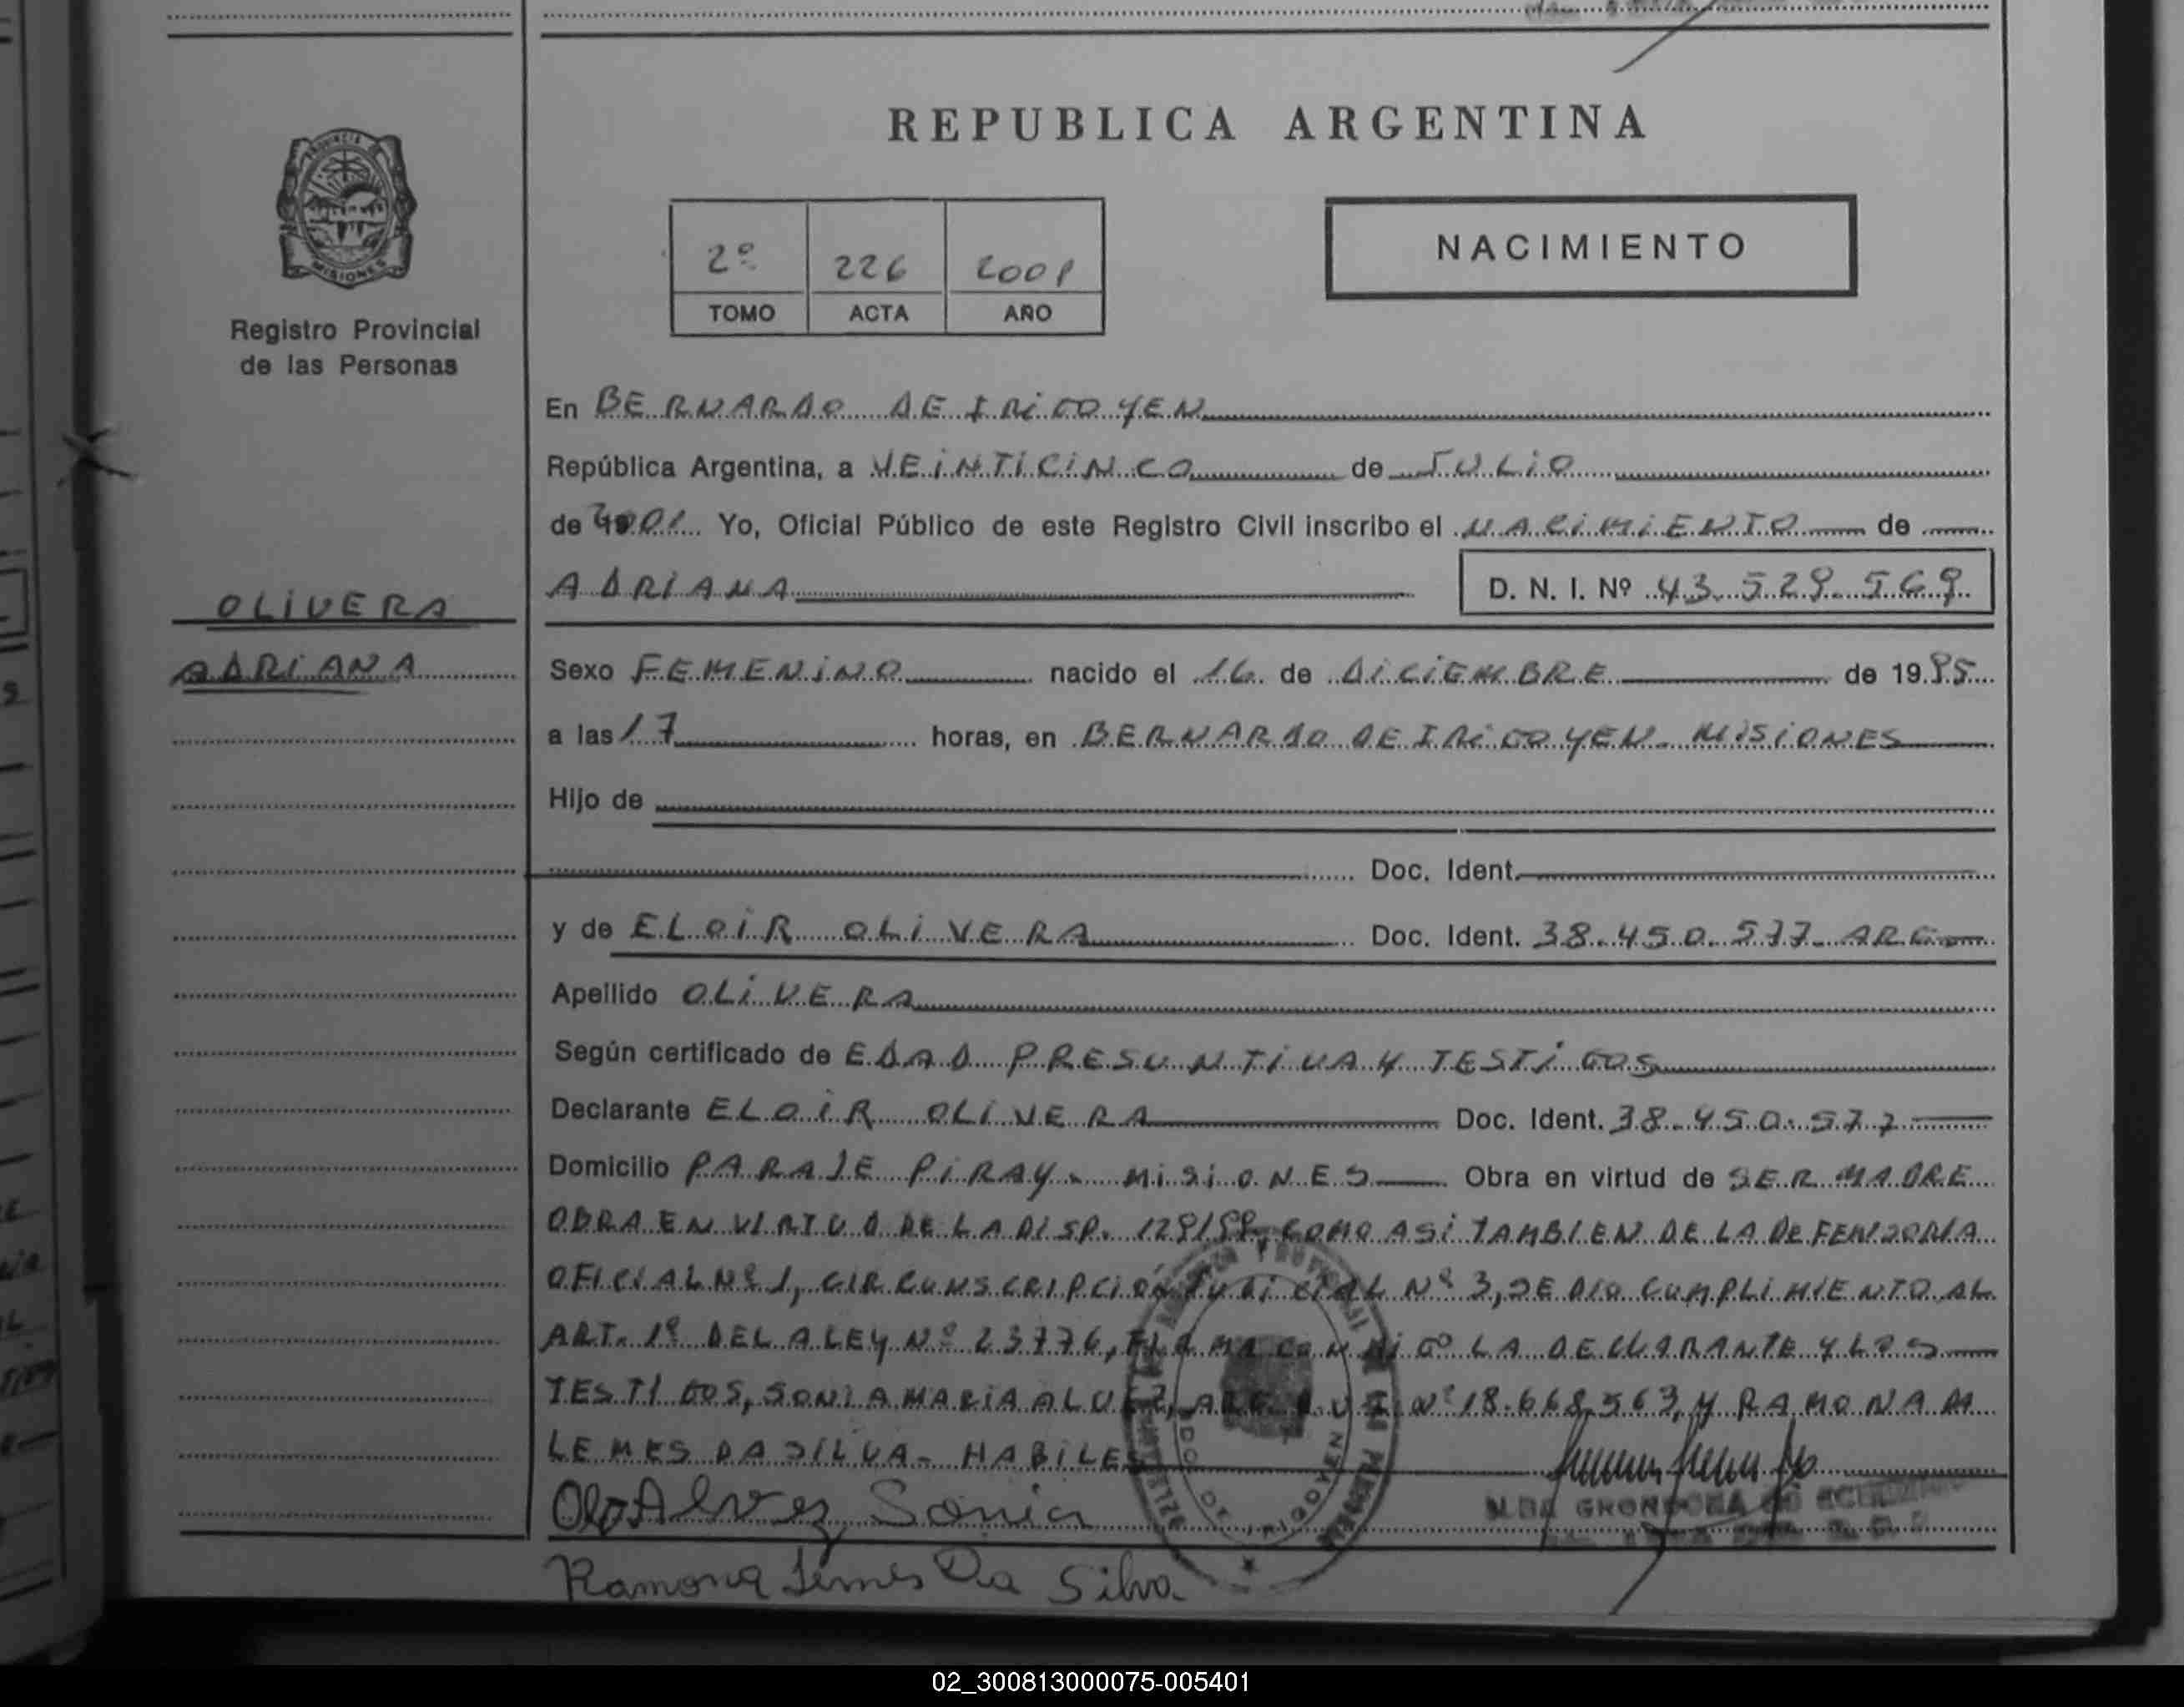 REPUBLICA ARGENTINA
PROVINCIA DE
MISIONES
Registro Provincial
de las Personas
2º 226 2001
TOMO ACTA AÑO
NACIMIENTO
En BERNARDO DE IRIGOYEN
República Argentina, a VEINTICINCO de JULIO
de 2001 Yo, Oficial Público de este Registro Civil inscribo el NACIMIENTO de
ADRIANA D. N. I. Nº 43.529.569
OLIVERA
ADRIANA
Sexo FEMENINO nacido el 16 de DICIEMBRE de 1985
a las 17 horas, en BERNARDO DE IRIGOYEN - MISIONES
Hijo de
Doc. Ident.
y de ELOIR OLIVERA Doc. Ident. 38.450.577 ARG
Apellido OLIVERA
Según certificado de EDAD PRESUNTIVA Y TESTIGOS
Declarante ELOIR OLIVERA Doc. Ident. 38.450.577
Domicilio PARAJE PIRAY - MISIONES Obra en virtud de SER MADRE
OBRA EN VIRTUD DE LA DISP. COMO ASI TAMBIEN DE LA DEFENSORIA
OFICIAL Nº 1, CIRCUNSCRIPCIÓN JUDICIAL Nº 3, SE DIO CUMPLIMIENTO AL
ART. 1º DE LA LEY Nº 23776, FIRMA CONMIGO LA DECLARANTE Y LOS
TESTIGOS, SONIA MARIA ALVEZ, ARG. D.N.I. Nº 18.668.563, Y RAMONA M
LEMES DA SILVA - HABILES
Alvez Sonia
Ramona Lemes Da Silva
DE IRIGOYEN
02_300813000075-005401